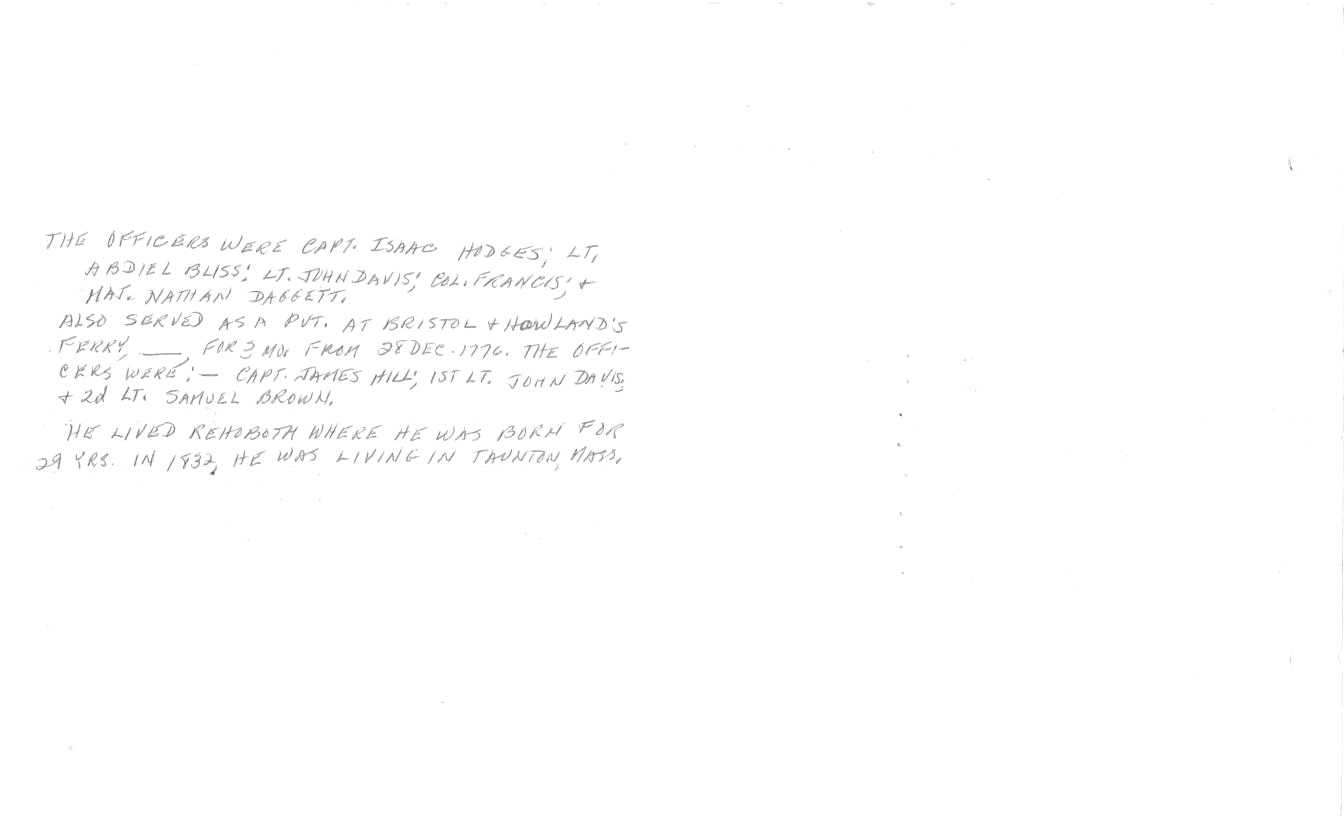 THE OFFICERS WERE CAPT. ISAAC HODGES; LT,
ABDIEL BLISS; LT. JOHN DAVIS; COL. FRANCIS; +
MAJ. NATHAN DAGGETT.
ALSO SERVED AS A PVT. AT BRISTOL + HOWLAND'S
FERRY, ___, FOR 3 MO. FROM 28 DEC. 1776. THE OFFI-
CERS WERE:— CAPT. JAMES HILL; 1ST LT. JOHN DAVIS;
+ 2d LT. SAMUEL BROWN.
HE LIVED REHOBOTH WHERE HE WAS BORN FOR
29 YRS. IN 1832, HE WAS LIVING IN TAUNTON, MASS.